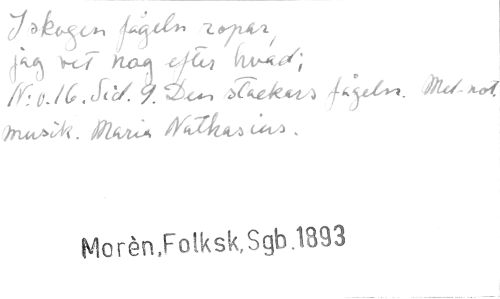 I skogen fågeln ropar,
jag vet nog efter hvad;
N:o.16. Sid. 9. Den stackars fågeln. Med not.
musik. Maria Nathasius.
Morèn,Folksk,Sgb.1893